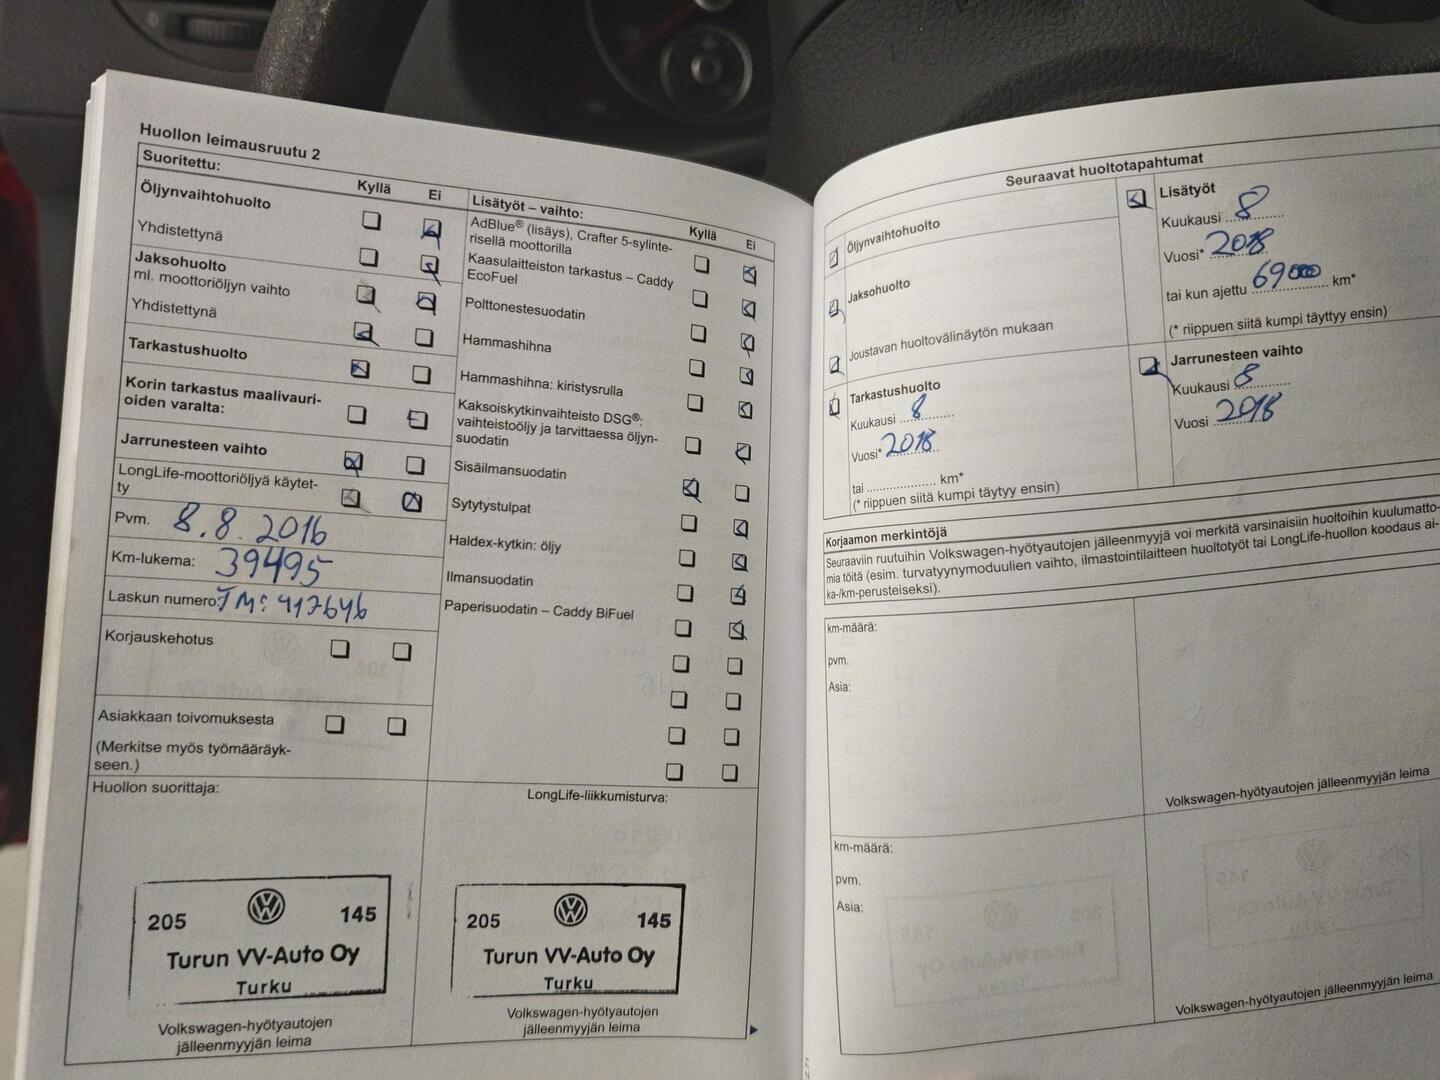 Huollon leimausruutu 2
Suoritettu:
Kyllä
Ei
Öljynvaihtohuolto
Yhdistettynä
Jaksohuolto
ml. moottoriöljyn vaihto
Yhdistettynä
Tarkastushuolto
Korin tarkastus maalivauri-
oiden varalta:
Jarrunesteen vaihto
LongLife-moottoriöljyä käytet-
ty
Pvm. 8.8.2016
Km-lukema: 39495
Laskun numero: TM: 417646
Korjauskehotus
Asiakkaan toivomuksesta
(Merkitse myös työmääräyk-
seen.)
Lisätyöt – vaihto:
Kyllä
Ei
AdBlue® (lisäys), Crafter 5-sylinte-
risellä moottorilla
Kaasulaitteiston tarkastus – Caddy
EcoFuel
Polttonestesuodatin
Hammashihna
Hammashihna: kiristysrulla
Kaksoiskytkinvaihteisto DSG®:
vaihteistoöljy ja tarvittaessa öljyn-
suodatin
Sisäilmansuodatin
Sytytystulpat
Haldex-kytkin: öljy
Ilmansuodatin
Paperisuodatin – Caddy BiFuel
Huollon suorittaja:
205 145
Turun VV-Auto Oy
Turku
Volkswagen-hyötyautojen
jälleenmyyjän leima
LongLife-liikkumisturva:
205 145
Turun VV-Auto Oy
Turku
Volkswagen-hyötyautojen
jälleenmyyjän leima
Seuraavat huoltotapahtumat
Öljynvaihtohuolto
Jaksohuolto
Joustavan huoltovälinäytön mukaan
Tarkastushuolto
Kuukausi 8
Vuosi* 2018
tai .................. km*
(* riippuen siitä kumpi täytyy ensin)
Lisätyöt
Kuukausi 8
Vuosi* 2018
tai kun ajettu 69000 km*
(* riippuen siitä kumpi täyttyy ensin)
Jarrunesteen vaihto
Kuukausi 8
Vuosi 2018
Korjaamon merkintöjä
Seuraaviin ruutuihin Volkswagen-hyötyautojen jälleenmyyjä voi merkitä varsinaisiin huoltoihin kuulumatto-
mia töitä (esim. turvatyynymoduulien vaihto, ilmastointilaitteen huoltotyöt tai LongLife-huollon koodaus ai-
ka-/km-perusteiseksi).
km-määrä:
pvm.
Asia:
Volkswagen-hyötyautojen jälleenmyyjän leima
km-määrä:
pvm.
Asia:
Volkswagen-hyötyautojen jälleenmyyjän leima